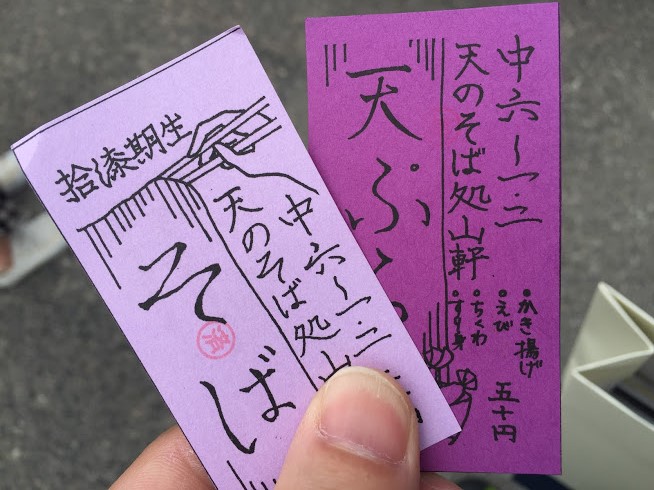 拾漆期生
中六〜一、二
天のそば処山
そば
済
中六〜一、二
天のそば処山軒
天ぷら
・かき揚げ
・えび
・ちくわ
・すり身
五十円